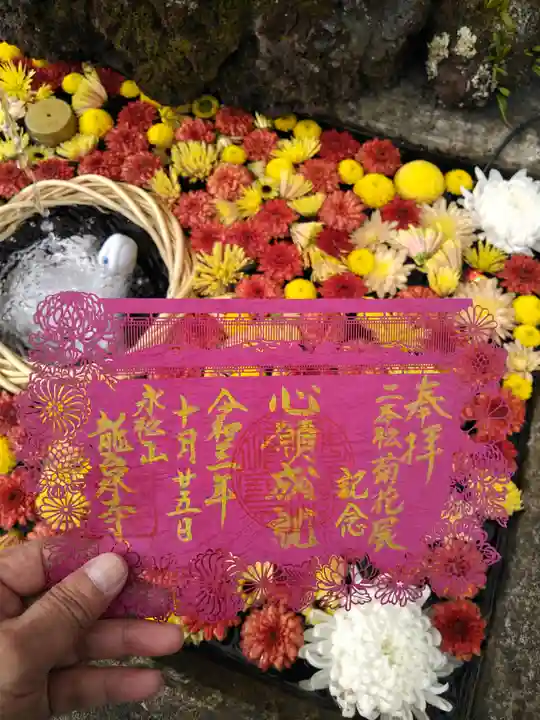 奉拝
二本松菊花展
記念
心願成就
令和三年
十月廿五日
永松山
龍泉寺